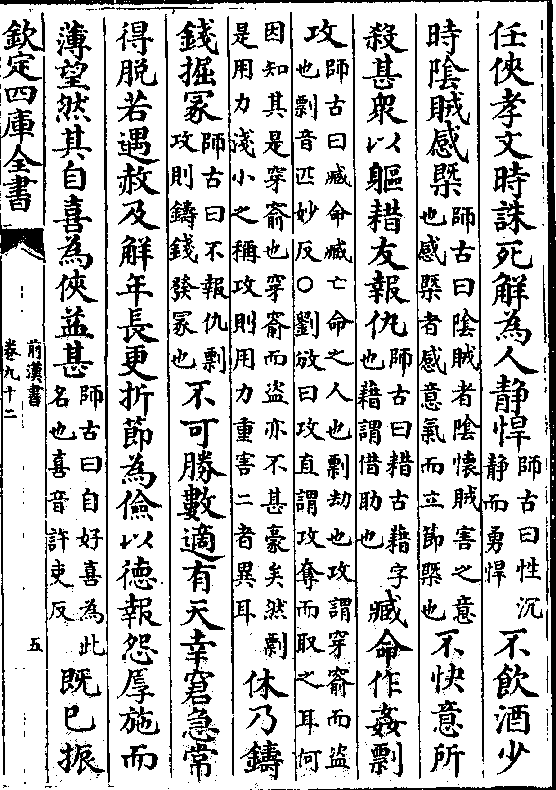 任俠孝文時誅死解為人静悍師古曰性沉静而勇悍不飲酒少
時陰賊感槩師古曰陰賊者陰懷賊害之意也感槩者感意氣而立節槩也不快意所
殺甚衆以軀耤友報仇師古曰耤古藉字也藉謂借助也臧命作姦剽
攻師古曰臧命臧亡命之人也剽劫也攻謂穿窬而盜也剽音匹妙反○劉攽曰攻直謂攻奪而取之耳何
因知其是穿窬也穿窬而盜亦不甚豪矣然剽是用力淺小之稱攻則用力重害二者異耳休乃鑄
錢掘冢師古曰不報仇剽攻則鑄錢發冢也不可勝數適有天幸窘急常
得脱若遇赦及解年長更折節為儉以德報怨厚施而
薄望然其自喜為俠益甚師古曰自好喜為此名也喜音許吏反既已振
欽定四庫全書
前漢書
卷九十二
五